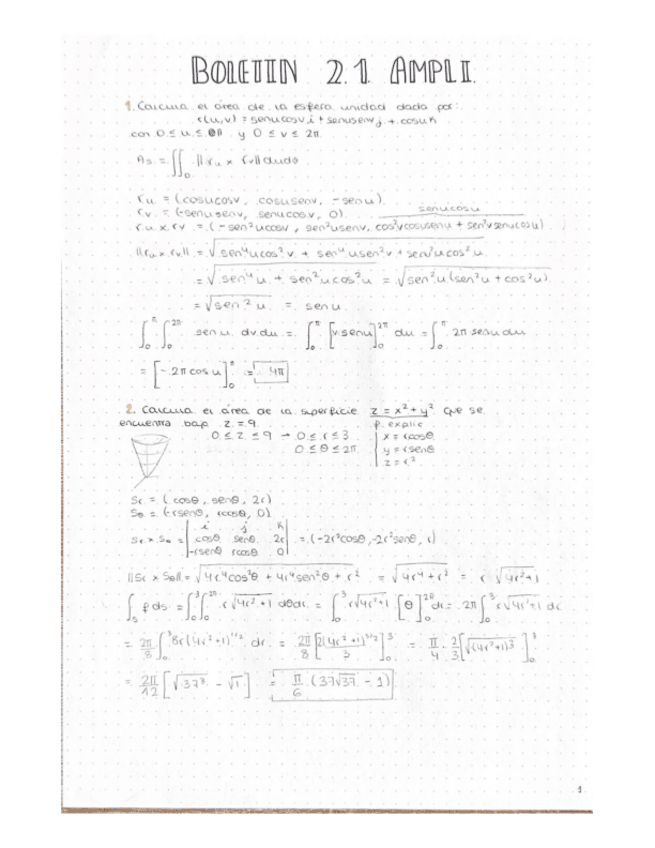 BOLETIN 2.1 AMPLI.
1. Calcula el área de la esfera unidad dada por:
r(u,v) = senucosv i + senusenv j + cosu k
con 0 ≤ u ≤ π y 0 ≤ v ≤ 2π
As = ∬_D ||ru × rv|| dudv
ru = (cosucosv, cosusenv, -senu)
rv = (-senusenv, senucosv, 0)
senucosu
ru × rv = (-sen²ucosv, sen²usenv, cos²vcosusenu + sen²vsenucosu)
||ru × rv|| = √(sen⁴ucos²v + sen⁴usen²v + sen²ucos²u)
= √(sen⁴u + sen²ucos²u) = √(sen²u(sen²u + cos²u))
= √(sen²u) = senu
∫₀^π ∫₀^2π senu dvdu = ∫₀^π [vsenu]₀^2π du = ∫₀^π 2π senu du
= [-2πcosu]₀^π = 4π
2. Calcula el área de la superficie z = x² + y² que se
encuentra bajo z = 9.
p. explic
0 ≤ z ≤ 9 → 0 ≤ r ≤ 3
0 ≤ θ ≤ 2π
x = rcosθ
y = rsenθ
z = r²
Sr = (cosθ, senθ, 2r)
Sθ = (-rsenθ, rcosθ, 0)
Sr × Sθ = | i j k | cosθ senθ 2r | -rsenθ rcosθ 0 | = (-2r²cosθ, -2r²senθ, r)
||Sr × Sθ|| = √(4r⁴cos²θ + 4r⁴sen²θ + r²) = √(4r⁴ + r²) = r √(4r²+1)
∫_S f ds = ∫₀³ ∫₀^2π r√(4r²+1) dθdr = ∫₀³ r√(4r²+1) [θ]₀^2π dr = 2π ∫₀³ r√(4r²+1) dr
= 2π/8 ∫₀³ 8r(4r²+1)^1/2 dr = 2π/8 [2(4r²+1)^3/2 / 3]₀³ = π/4 · 2/3 [√(4r²+1)³]₀³
= 2π/12 [√37³ - √1] = π/6 (37√37 - 1)
1